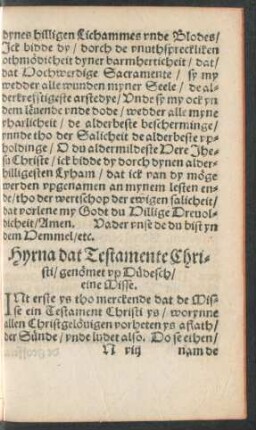 dynes hilligen Lichammes vnde Blodes/
Jck bidde dy/ dorch de vnuthspreckliken
othmödicheit dyner barmherticheit/ dat/
dat Hochwerdige Sacramente/ sy my
wedder alle wunden myner Seele/ de al-
derkrefftigeste arstedye/ Vnde sy my ock yn
dem leuende vnde dode/ wedder alle myne
vharlicheit/ de alderbeste bescherminge/
vnnde tho der Salicheit de alderbeste vp-
holdinge/ O du aldermildeste Here Jhe-
su Christe/ ick bidde dy dorch dynen alder-
hilligesten Lyham/ dat ick van dy möge
werden vpgenamen an mynem lesten en-
de/ tho der wertschop der ewigen salicheit/
dat vorlene my Godt du Hillige Dreuol-
dicheit/ Amen. Vader vnse de du bist yn
dem Hemmel/ etc.
Hyrna dat Testamente Chri-
sti/ genömet vp Düdesch/
eine Misse.
INt erste ys tho merckende dat de Mis-
se ein Testament Christi ys/ worynne
allen Christgelöuigen vorheten ys aflath/
der Sünde/ vnde ludet also. Do se ethen/
N iij nam de